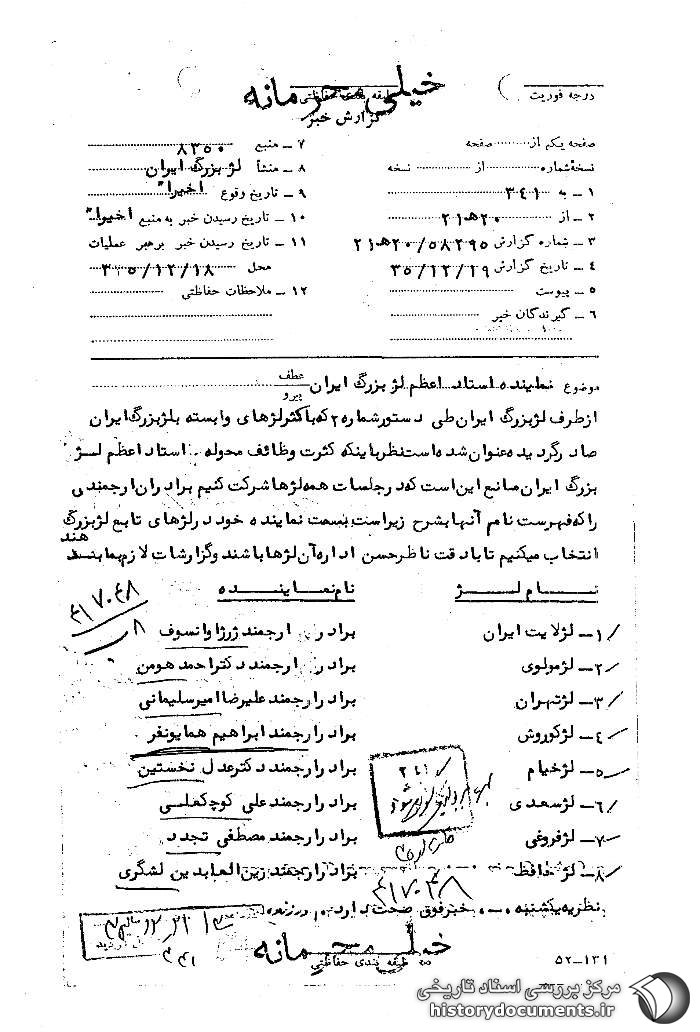 خیلی محرمانه
درجه فوریت
طبقه بندی حفاظتی
گزارش خبر
صفحه یکم از صفحه
نسخه شماره از نسخه
۱ – به ۳۴۱
۲ – از ۲۰هـ۲۱
۳ – شماره گزارش ۲۱هـ۲۰/۵۸۲۹۵
۴ – تاریخ گزارش ۳۵/۱۲/۱۹
۵ – پیوست
۶ – گیرندگان خبر
۷ – منبع ۸۳۵۰
۸ – منشأ لژ بزرگ ایران
۹ – تاریخ وقوع اخیرا"
۱۰ – تاریخ رسیدن خبر به منبع اخیرا"
۱۱ – تاریخ رسیدن خبر برهبر عملیات
محل ۳۵/۱۲/۱۸
۱۲ – ملاحظات حفاظتی
موضوع نماینده استاد اعظم لژ بزرگ ایران عطف پیرو
ازطرف لژبزرگ ایران طی دستورشماره ۲ که باکثرلژهای وابسته بلژبزرگ ایران
صادرگردیده عنوان شده است نظرباینکه کثرت وظائف محوله . استاد اعظم لژ
بزرگ ایران مانع این است که درجلسات همه لژها شرکت کنیم برادران ارجمندی
را که فهرست نام آنها بشرح زیراست بسمت نماینده خود درلژهای تابع لژبزرگ
انتخاب میکنیم تا با دقت ناظرحسن اداره آن لژها باشند وگزارشات لازم بما بدهند
نام لژ نام نماینده
۴۱۷۰۴۸
۱– لژلایت ایران برادر ارجمند ژرژاوانسوف
۲– لژمولوی برادر ارجمند دکتراحمد هومن
۳– لژتهران برادر ارجمند علیرضا امیرسلیمانی
۴– لژکوروش برادر ارجمند ابراهیم همایونفر
۵– لژخیام برادر ارجمند دکترعدل نخستین
۶– لژسعدی برادر ارجمند علی کوچکعلی
۷– لژفروغی برادر ارجمند مصطفی تجدد
۸– لژ حافظ برادر ارجمند زین العابدین لشگری
۳۴۱
۴۱۷۰۴۸
نظریه یکشنبه . خبرفوق صحت دارد
خیلی محرمانه
طبقه بندی حفاظتی
۳۴۱
۵۲–۱۳۱
مرکز بررسی اسناد تاریخی
historydocuments.ir